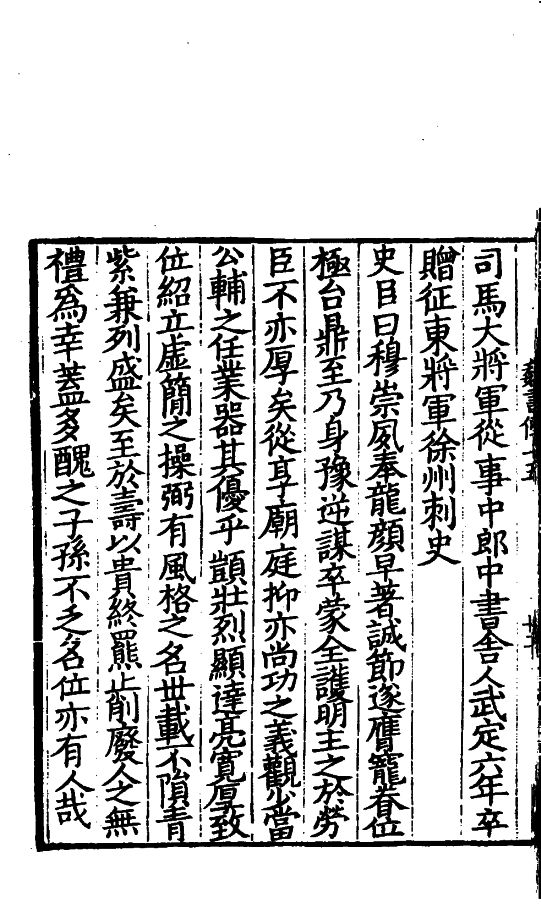 司馬大將軍從事中郎中書舍人武定六年卒
贈征東將軍徐州刺史
史臣曰穆崇夙奉龍顏早著誠節遂膺寵眷位
極台鼎至乃身豫逆謀卒蒙全護明主之於勞
臣不亦厚矣從享廟庭抑亦尚功之義觀少當
公輔之任業器其優乎顗壯烈顯達亮寬厚致
位紹立虛簡之操弼有風格之名世載不隕青
紫兼列盛矣至於壽以貴終羆止削廢人之無
禮爲幸蓋多醜之子孫不乏名位亦有人哉